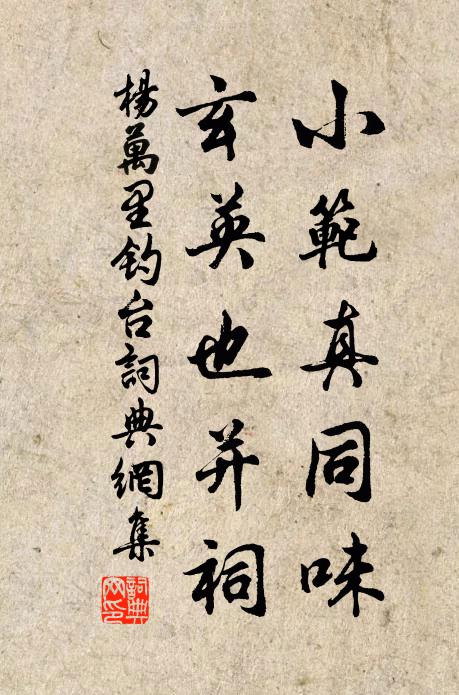 小範真同味
玄英也并祠
楊萬里釣台詞典網集
詞典網印